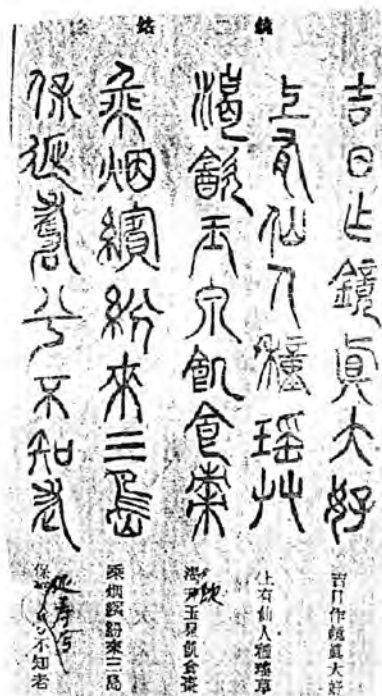 鏡銘
吉日乍鏡眞大好
上有仙人種瑶艸
渴飲玉泉飢食棗
乘烟繽紛來三島
保延壽兮不知老
吉日作鏡眞大好
上有仙人種瑤草
渴飲玉泉飢食棗
乘烟繽紛來三島
保延壽兮不知老